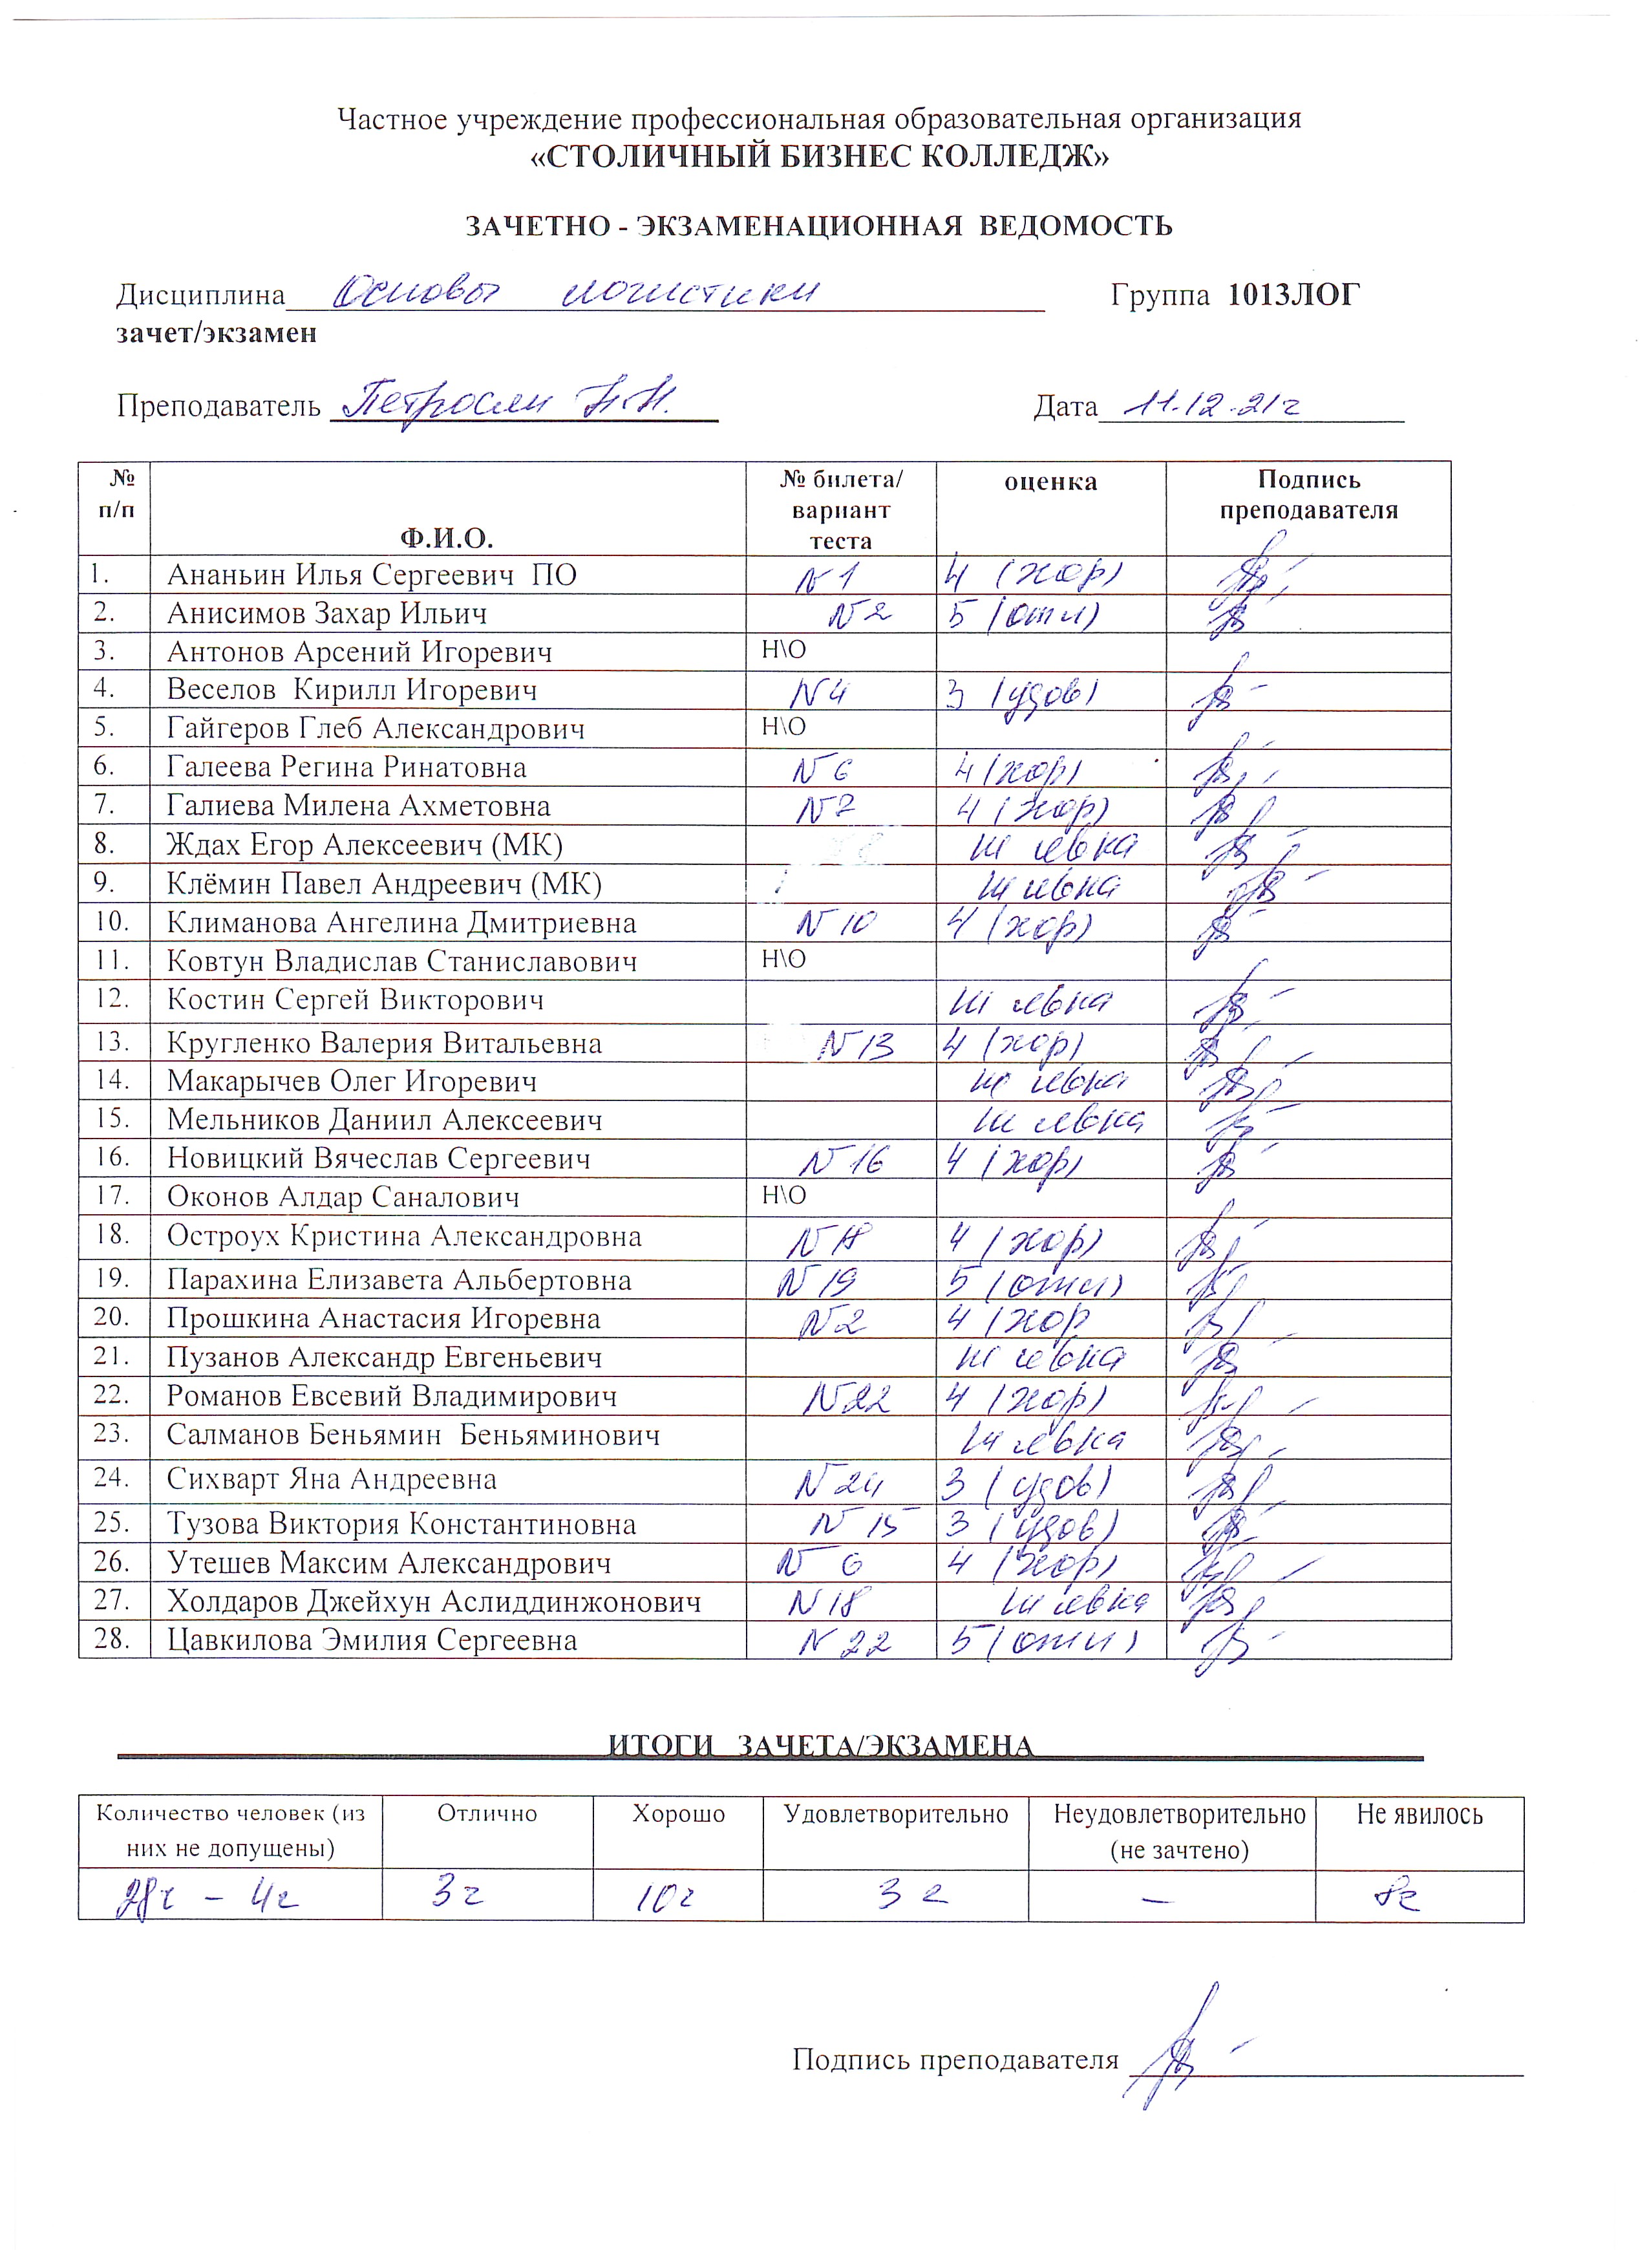 Частное учреждение профессиональная образовательная организация
«СТОЛИЧНЫЙ БИЗНЕС КОЛЛЕДЖ»
ЗАЧЕТНО - ЭКЗАМЕНАЦИОННАЯ ВЕДОМОСТЬ
Дисциплина Основы логистики Группа 1013ЛОГ
зачет/экзамен
Преподаватель Петросян Н.Н. Дата 11.12.21г
№ п/п Ф.И.О. № билета/ вариант теста оценка Подпись преподавателя
1. Ананьин Илья Сергеевич ПО N1 4 (хор)
2. Анисимов Захар Ильич N2 5 (отл)
3. Антонов Арсений Игоревич Н\О
4. Веселов Кирилл Игоревич N4 3 (удов)
5. Гайгеров Глеб Александрович Н\О
6. Галеева Регина Ринатовна N6 4 (хор)
7. Галиева Милена Ахметовна N7 4 (хор)
8. Ждах Егор Алексеевич (МК) н явка
9. Клёмин Павел Андреевич (МК) н явка
10. Климанова Ангелина Дмитриевна N10 4 (хор)
11. Ковтун Владислав Станиславович Н\О
12. Костин Сергей Викторович н явка
13. Кругленко Валерия Витальевна N13 4 (хор)
14. Макарычев Олег Игоревич н явка
15. Мельников Даниил Алексеевич н явка
16. Новицкий Вячеслав Сергеевич N16 4 (хор)
17. Оконов Алдар Саналович Н\О
18. Остроух Кристина Александровна 4 (хор)
19. Парахина Елизавета Альбертовна N19 5 (отл)
20. Прошкина Анастасия Игоревна N2 4 (хор
21. Пузанов Александр Евгеньевич н явка
22. Романов Евсевий Владимирович N22 4 (хор)
23. Салманов Беньямин Беньяминович н явка
24. Сихварт Яна Андреевна N24 3 (удов)
25. Тузова Виктория Константиновна N15 3 (удов)
26. Утешев Максим Александрович N6 4 (хор)
27. Холдаров Джейхун Аслиддинжонович N18 н явка
28. Цавкилова Эмилия Сергеевна N22 5 (отл)
ИТОГИ ЗАЧЕТА/ЭКЗАМЕНА
Количество человек (из них не допущены) Отлично Хорошо Удовлетворительно Неудовлетворительно (не зачтено) Не явилось
28ч - 4ч 3ч 10ч 3ч - 8ч
Подпись преподавателя